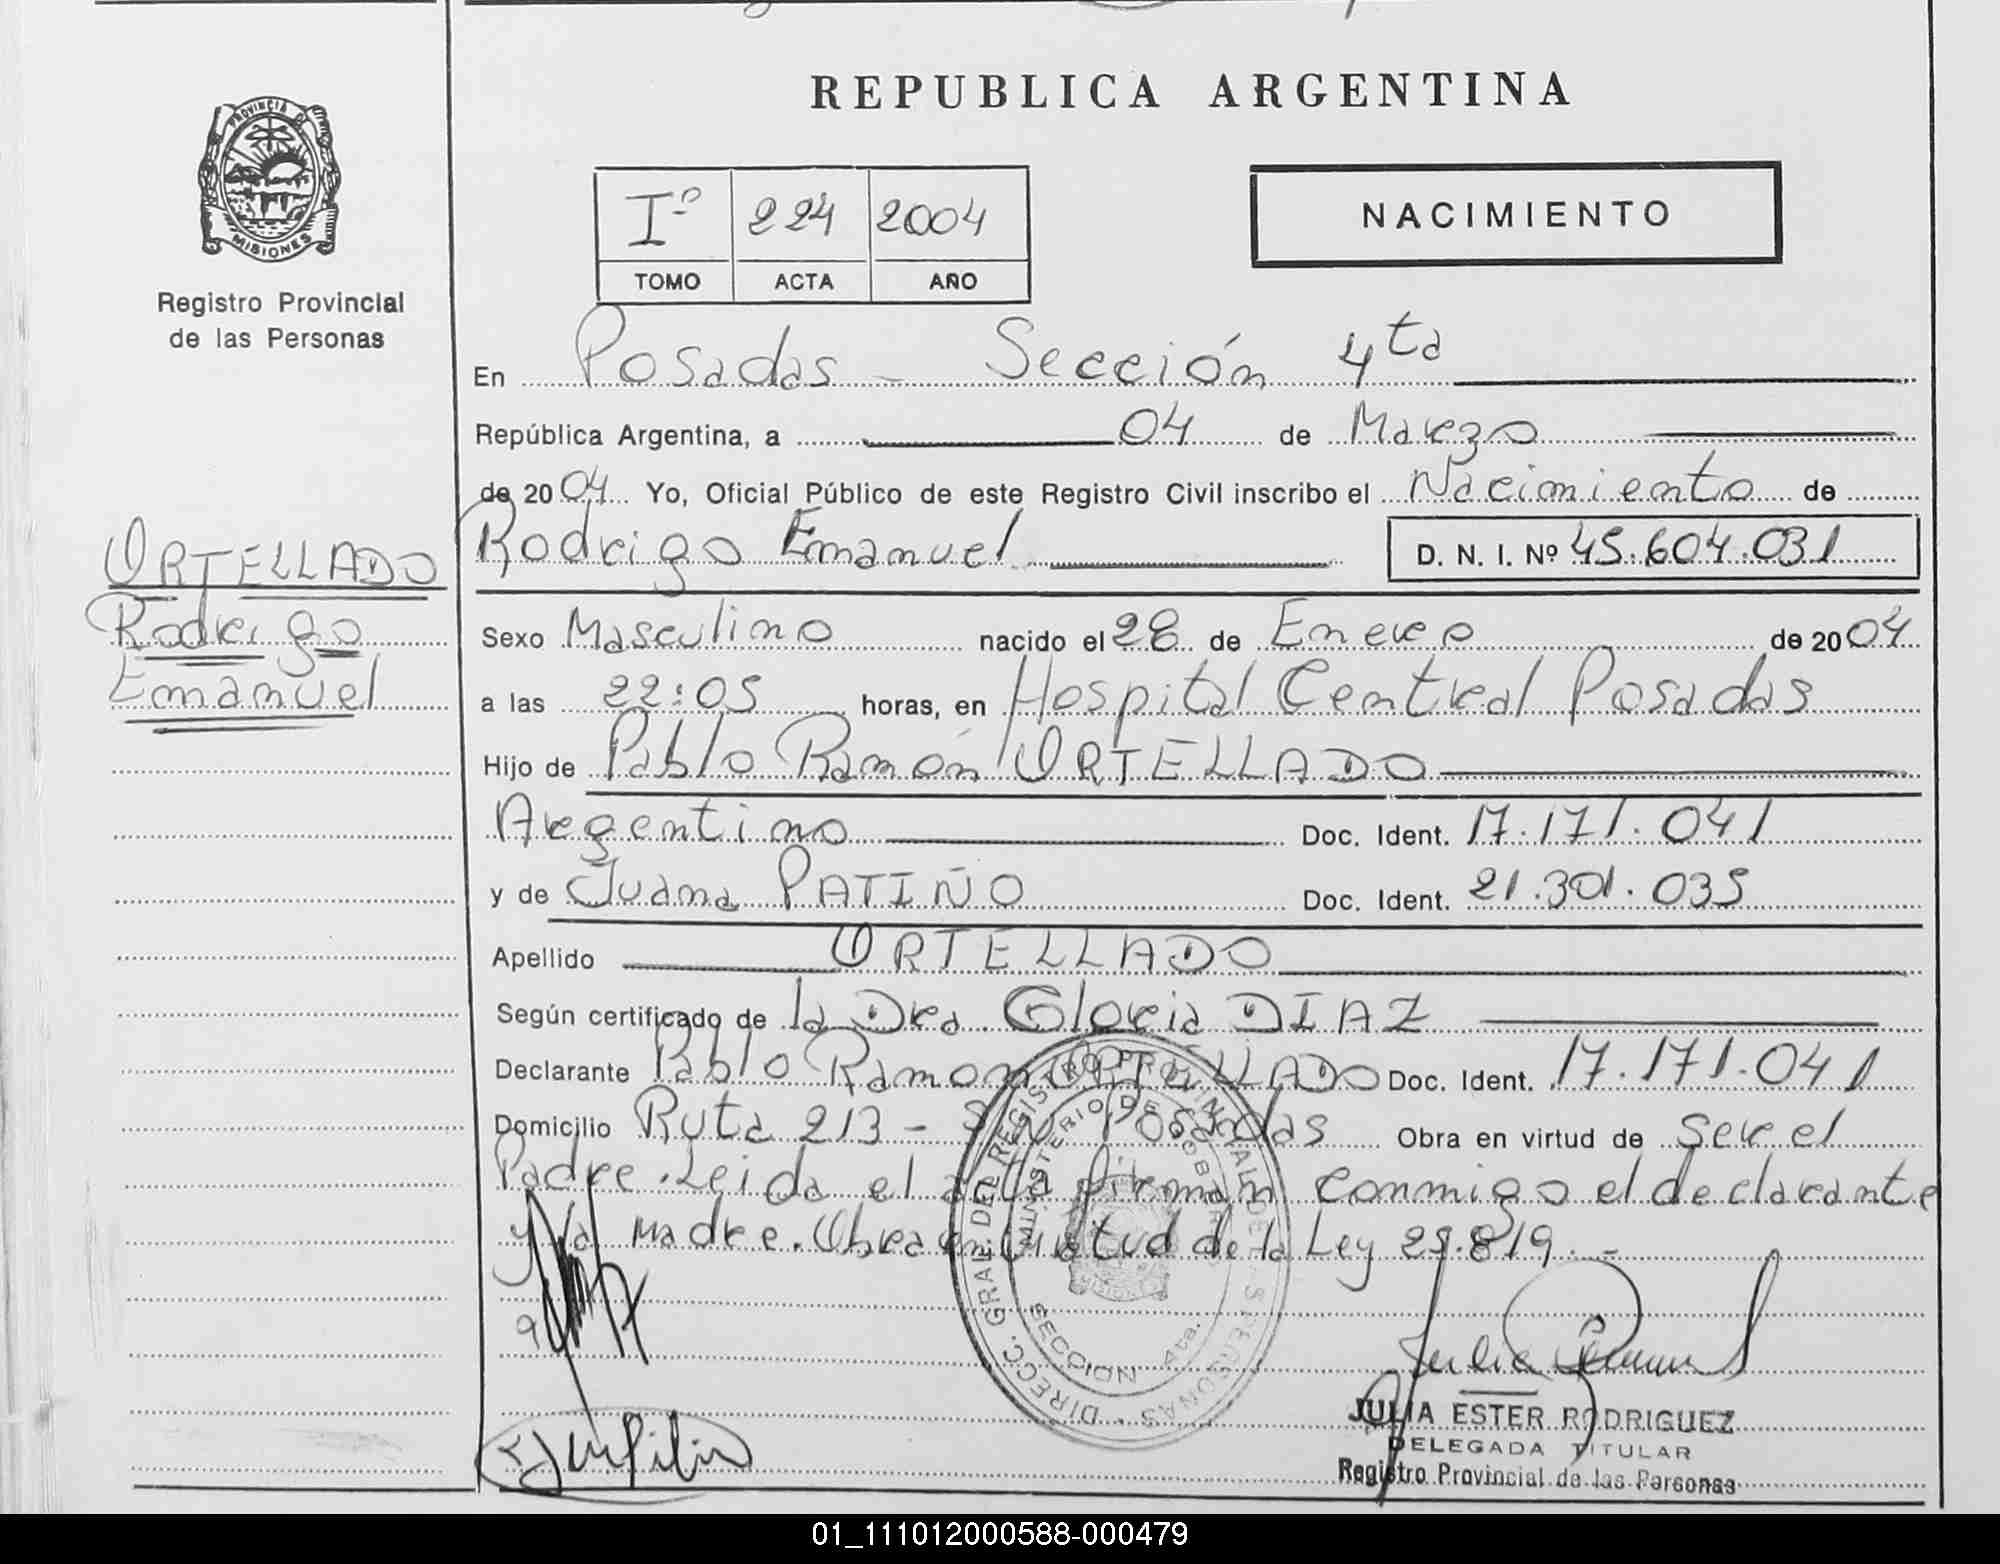 REPUBLICA ARGENTINA
PROVINCIA DE
MISIONES
Registro Provincial
de las Personas
Iº 224 2004
TOMO ACTA AÑO
NACIMIENTO
En Posadas - Sección 4ta
República Argentina, a 04 de Marzo
de 2004 Yo, Oficial Público de este Registro Civil inscribo el Nacimiento de
Rodrigo Emanuel D. N. I. Nº 45.604.031
ORTELLADO
Rodrigo
Emanuel
Sexo Masculino nacido el 28 de Enero de 2004
a las 22:05 horas, en Hospital Central Posadas
Hijo de Pablo Ramón ORTELLADO
Argentino Doc. Ident. 17.171.041
y de Juana PATIÑO Doc. Ident. 21.301.035
Apellido ORTELLADO
Según certificado de la Dra. Gloria DIAZ
Declarante Pablo Ramon ORTELLADO Doc. Ident. 17.171.041
Domicilio Ruta 213 - S/N Posadas Obra en virtud de Ser el
Padre. Leida el acta firman conmigo el declarante
y la Madre. Obra en virtud de la Ley 25.819.-
DIRECC. GRAL. DEL REGISTRO PROVINCIAL DE LAS PERSONAS
MINISTERIO DE GOBIERNO
SECCION 4ta.
JULIA ESTER RODRIGUEZ
DELEGADA TITULAR
Registro Provincial de las Personas
01_111012000588-000479